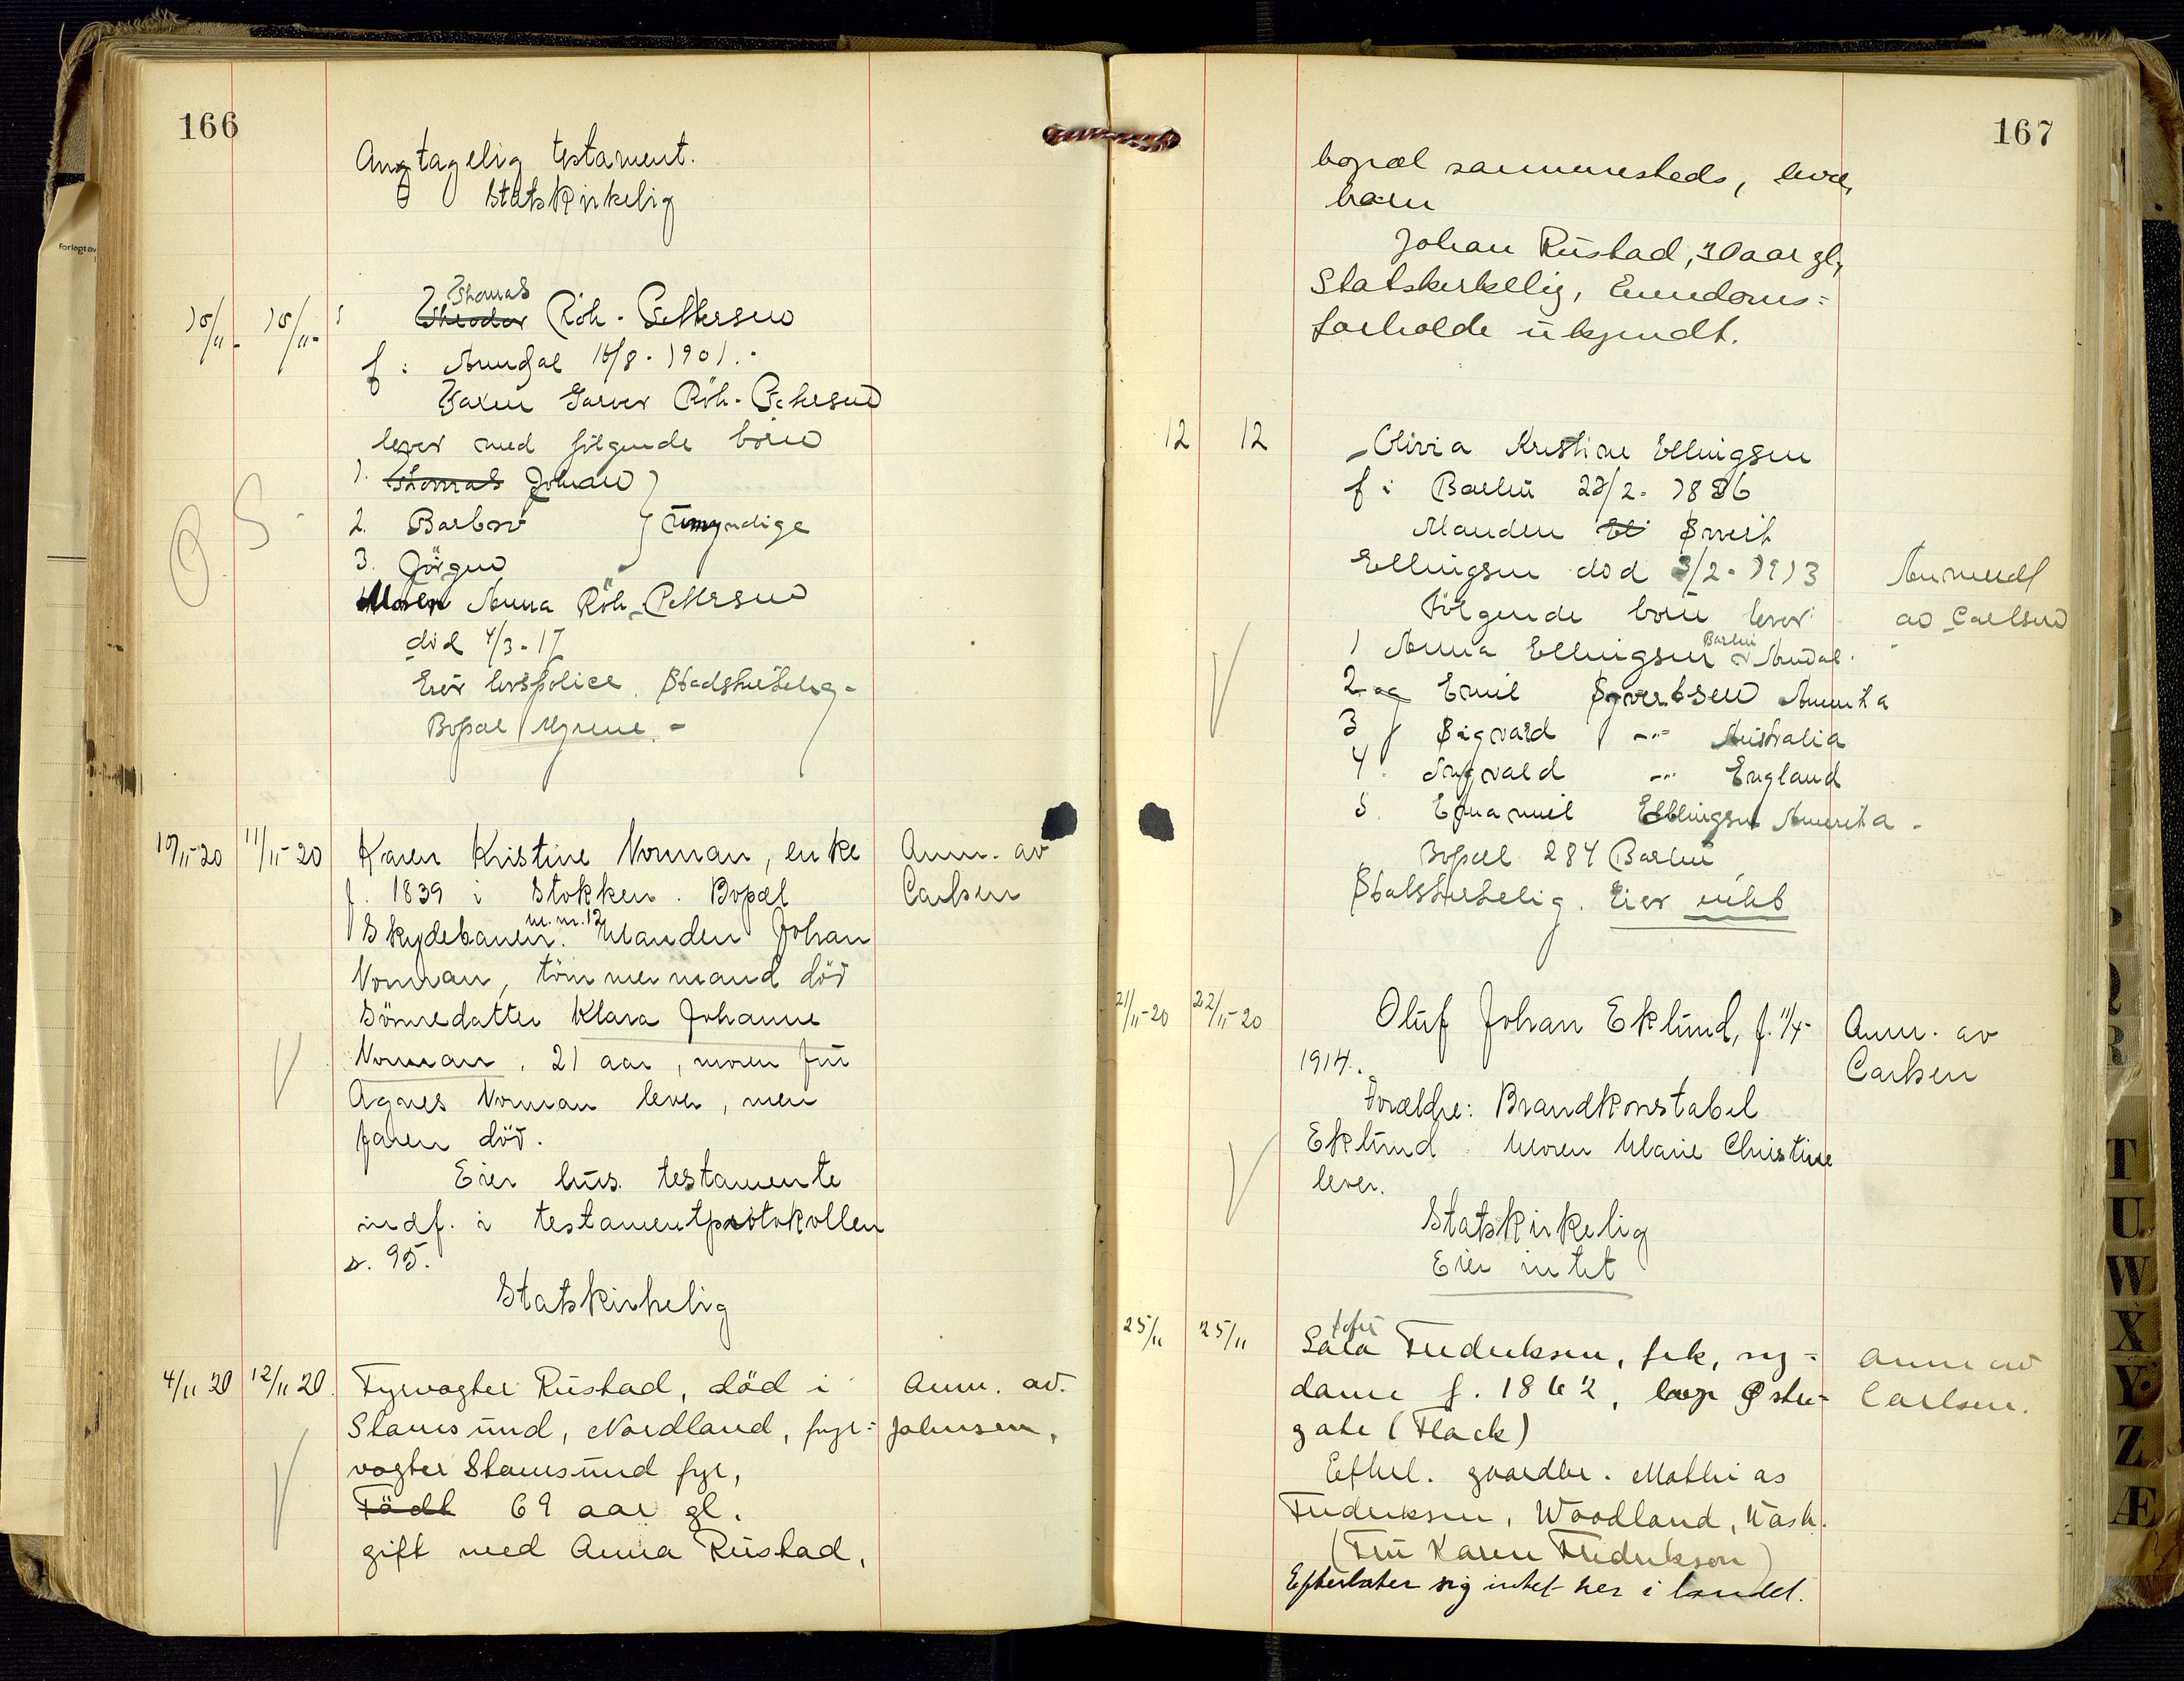 166
Angtagelig testament.
Statskirkelig
15/11- 15/11-
Thomas
Theodor Röh-Pettersen
f: Arendal 16/8-1901.-
Faren Röh-Pettersen
lever med følgende börn
1. Thomas Johan
2. Barbro } Umyndige
3. Jörgen
Moren Anna Röh-Pettersen
död 4/3-17
Eier livspolice. Stadskirkelig-
Bopæl Myrene.-
10/11-20 11/11-20 Karen Kristine Norman, enke Anm. av
f. 1839 i Stokken. Bopæl Carlsen
m.nr.12
Skydebanen. Manden Johan
Norman, tömmermand död
Sönnedatter Klara Johanne
Norman, 21 aar, moren fru
Agnes Norman lever, men
faren död.
Eier hus. testamente
indf. i testamentprotokollen
s. 95.
Statskirkelig
4/11 20 12/11 20. Fyrvogter Rustad, död i Anm. av.
Stamsund, Nordland, fyr= Johnsen,
vogter Stamsund fyr,
Födt 69 aar gl.
gift med Anna Rustad,
167
bopæl sammesteds, lever,
barn
Johan Rustad, 30 aar gl,
Statskirkelig, Eiendoms=
forholde ukjendt.
12 12 Olivia Kristine Ellingsen
f i Barbu 22/2-1886
Manden El Syvert
Ellingsen död 3/2-1913 Anmeldt
Følgende börn lever av Carlsen
Barbu
1 Anna Ellingsen Arendal.
2 og Emil Syvertsen Amerika
3 Sigvard -"- Australia
4. Ingvald -"- England
5. Emanuel Ellingsen Amerika-
Bopæl 284 Barbu
Statskirkelig. Eier intet
21/11-20 22/11-20 Oluf Johan Eklund, f. 11/4- Anm. av
1914. Carlsen
Forældre: Brandkonstabel
Eklund Moren Marie Christine
lever.
Statskirkelig
Eier intet
25/11 25/11 Fredriksen, frk, sy= Anm av
dame f. 1862, Østre= Carlsen.
gate (Flack)
Efterl. gaardbr. Mathias
Fredriksen, Woodland, Wash.
(Fru Karen Fredrikson)
Efterlater sig intet her i landet.
Q
R
T
U
W
X
Y
Z
Æ